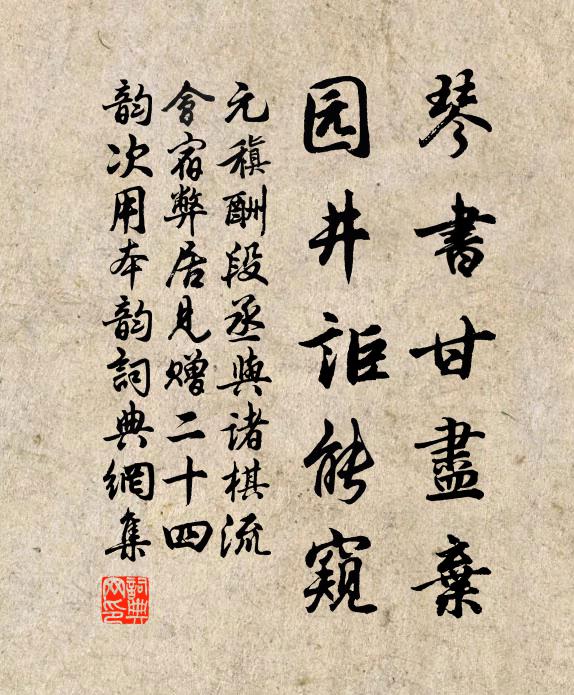 琴書甘盡棄
园井詎能窺
元稹酬段丞與诸棋流
會宿弊居見赠二十四
韵次用本韵詞典網集